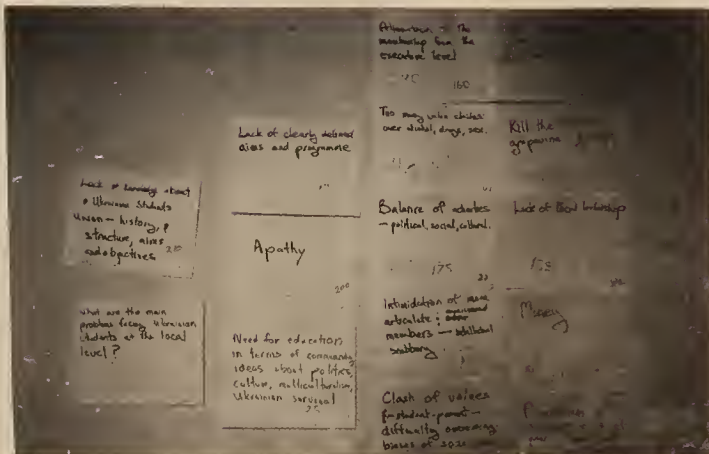 Lack of knowledge about
Ukrainian Students
Union - history,
structure, aims
and objectives
210
What are the main
problems facing Ukrainian
students at the local
level?
Lack of clearly defined
aims and programme
Apathy
200
Need for education
in terms of community,
ideas about politics,
culture, multiculturalism,
Ukrainian survival
Alienation - The
membership from the
executive level
160
Too many value clashes
over alcohol, drugs, sex.
Balance of activities
- political, social, cultural.
175
Intimidation of more
articulate
members - intellectual
snobbery
Clash of values
for student-parent -
difficulty overcoming
biases of
Kill the
grapevine
Lack of local leadership
Money